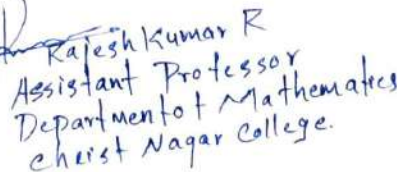 Rajesh Kumar R
Assistant Professor
Department of Mathematics
Christ Nagar College.